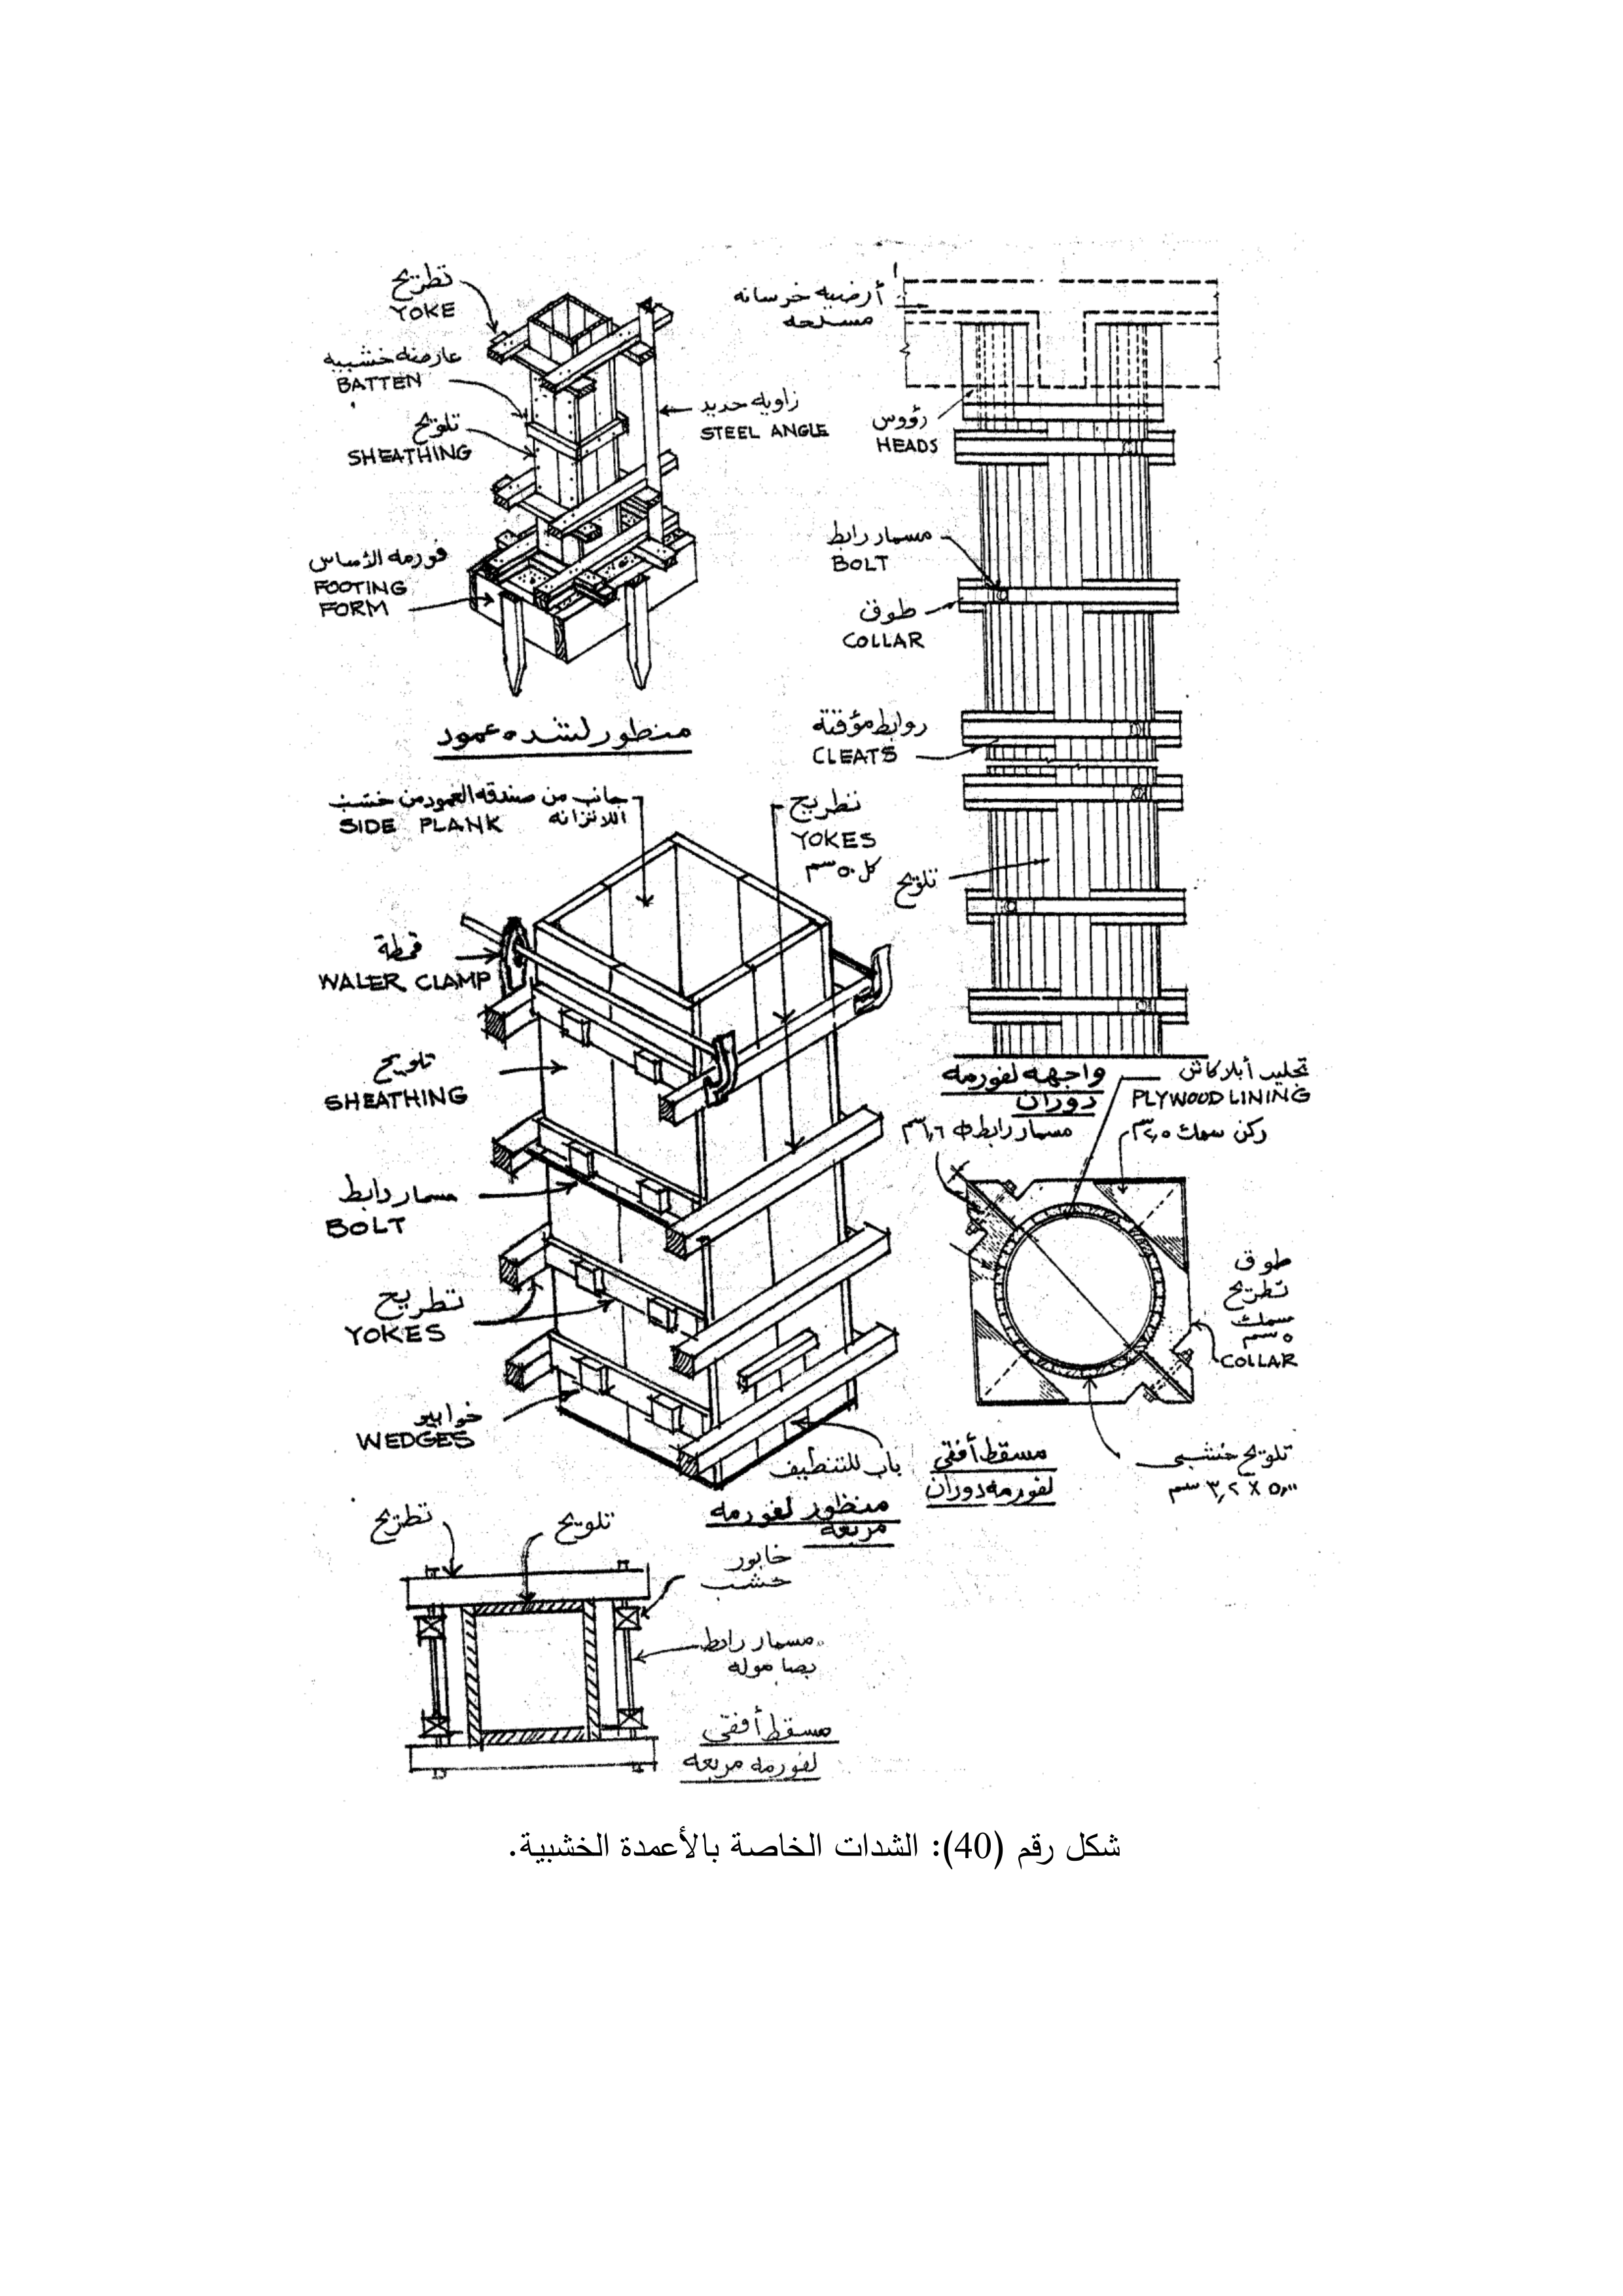 تطريح
YOKE
عارضه خشبيه
BATTEN
تلويح
SHEATHING
فورمه الأساس
FOOTING
FORM
زاويه حديد
STEEL ANGLE
منظور لشده عمود
أرضيه خرسانه
مسلحه
رؤوس
HEADS
مسمار رابط
BOLT
طوق
COLLAR
روابط مؤقتة
CLEATS
تلويح
واجهه لفورمه
دوران
جانب من صندقه العمود من خشب
اللاتزانه
SIDE PLANK
تطريح
YOKES
كل ٥٠ سم
قمطة
WALER CLAMP
تلويح
SHEATHING
مسمار رابط
BOLT
تطريح
YOKES
خوابير
WEDGES
باب للتنظيف
منظور لفورمه
مربعه
تجليد أبلاكاش
PLYWOOD LINING
مسمار رابط ϕ ١,٦ سم
ركن سمك ٢,٥ سم
طوق
تطريح
سمك
٥ سم
COLLAR
تلويح خشبى
٣,٢ X ٥,٠٠ سم
مسقط أفقى
لفورمه دوران
تطريح
تلويح
خابور
خشب
مسمار رابط
بصاموله
مسقط أفقى
لفورمه مربعه
شكل رقم (40): الشدات الخاصة بالأعمدة الخشبية.